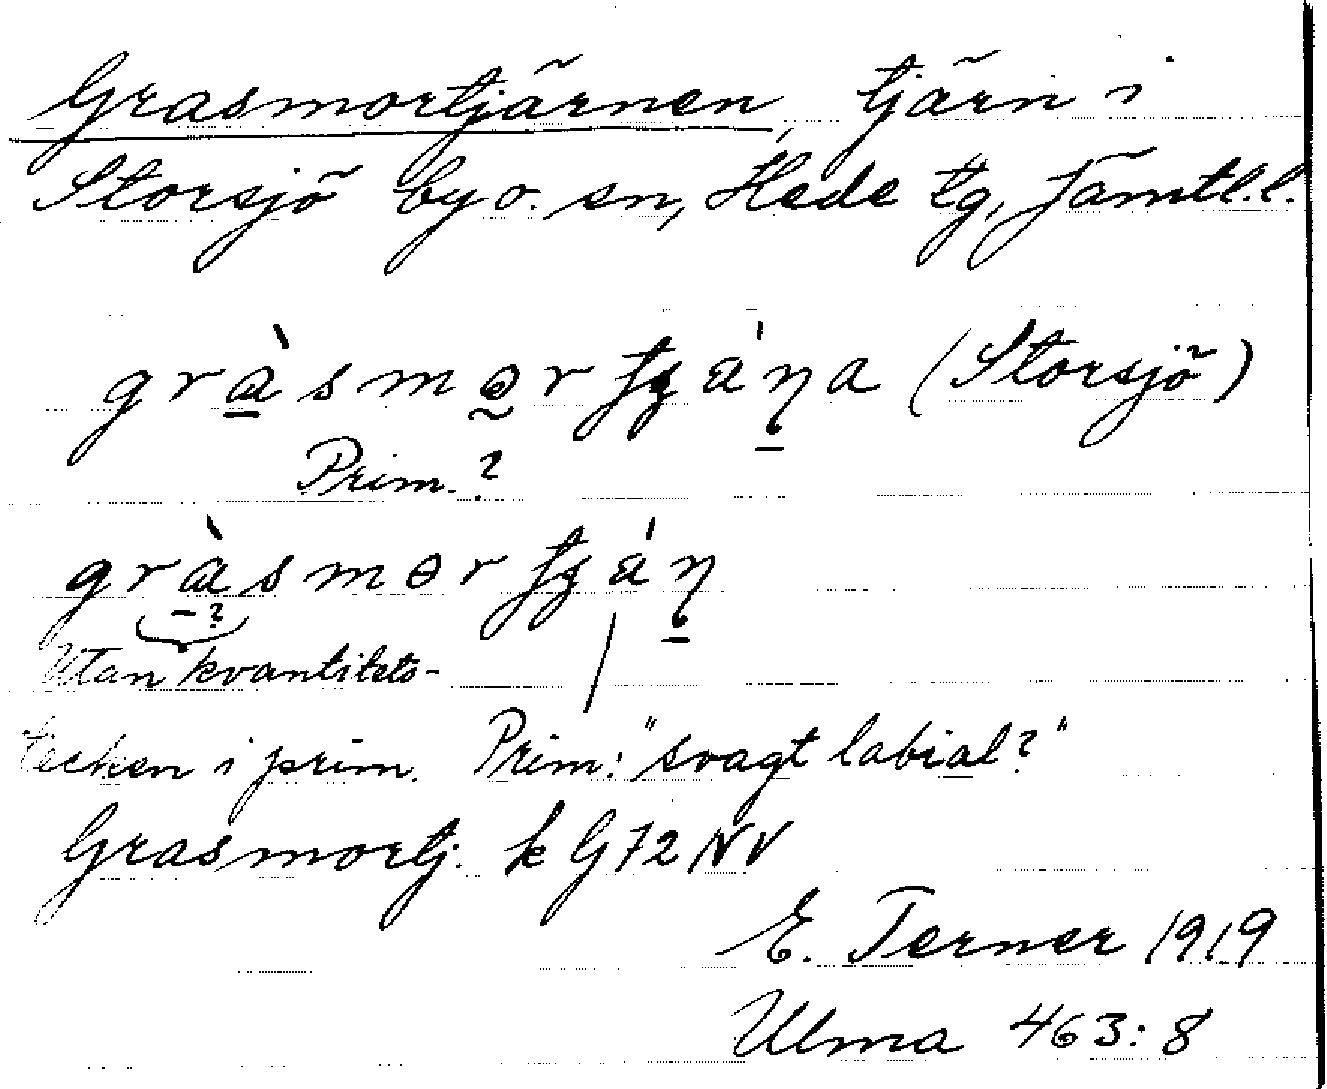 Grasmortjärnen, tjärn i
Storsjö by o. sn, Hede tg, Jämtl.l.
(Storsjö)
Prim. ?
Utan kvantitets-
tecken i prim. Prim: "svagt labial?"
Grasmortj. k G72NV
E. Terner 1919
Ulma 463:8